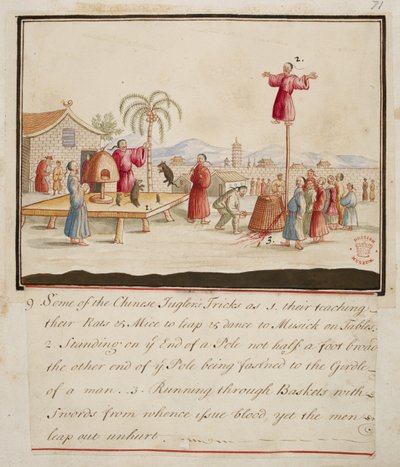 71
2.
3.
BRITISH
MUSEUM
9 Some of the Chinese Juglers Tricks as 1. their teaching
their Rats & Mice to leap & dance to Musick on Tables.
2 Standing on yͤ End of a Pole not half a foot broad
the other end of yͤ Pole being fas'ned to the Girdle
of a man . 3. Running through Baskets with
Swords from whence issue blood, yet the men
leap out unhurt .